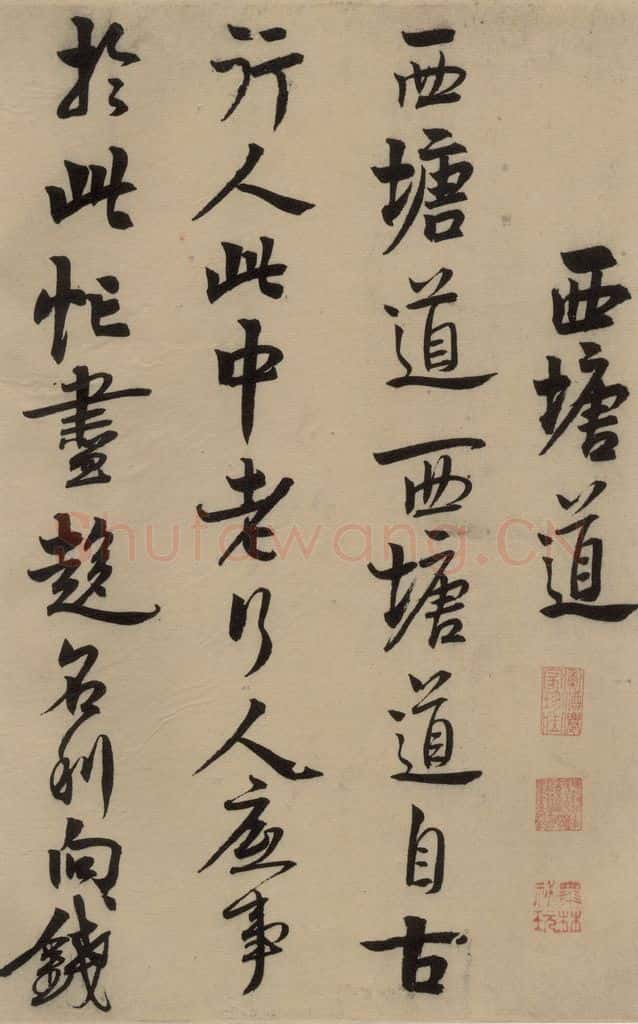 西塘道
西塘道西塘道自古
行人此中老行人底事
於此忙盡趨名利向錢
Shufawang.CN